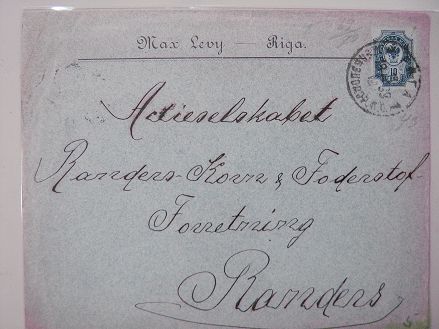 Max Levy — Riga.
10
Actieselskabet
Randers-Korn & Foderstof-
Forretning
Randers